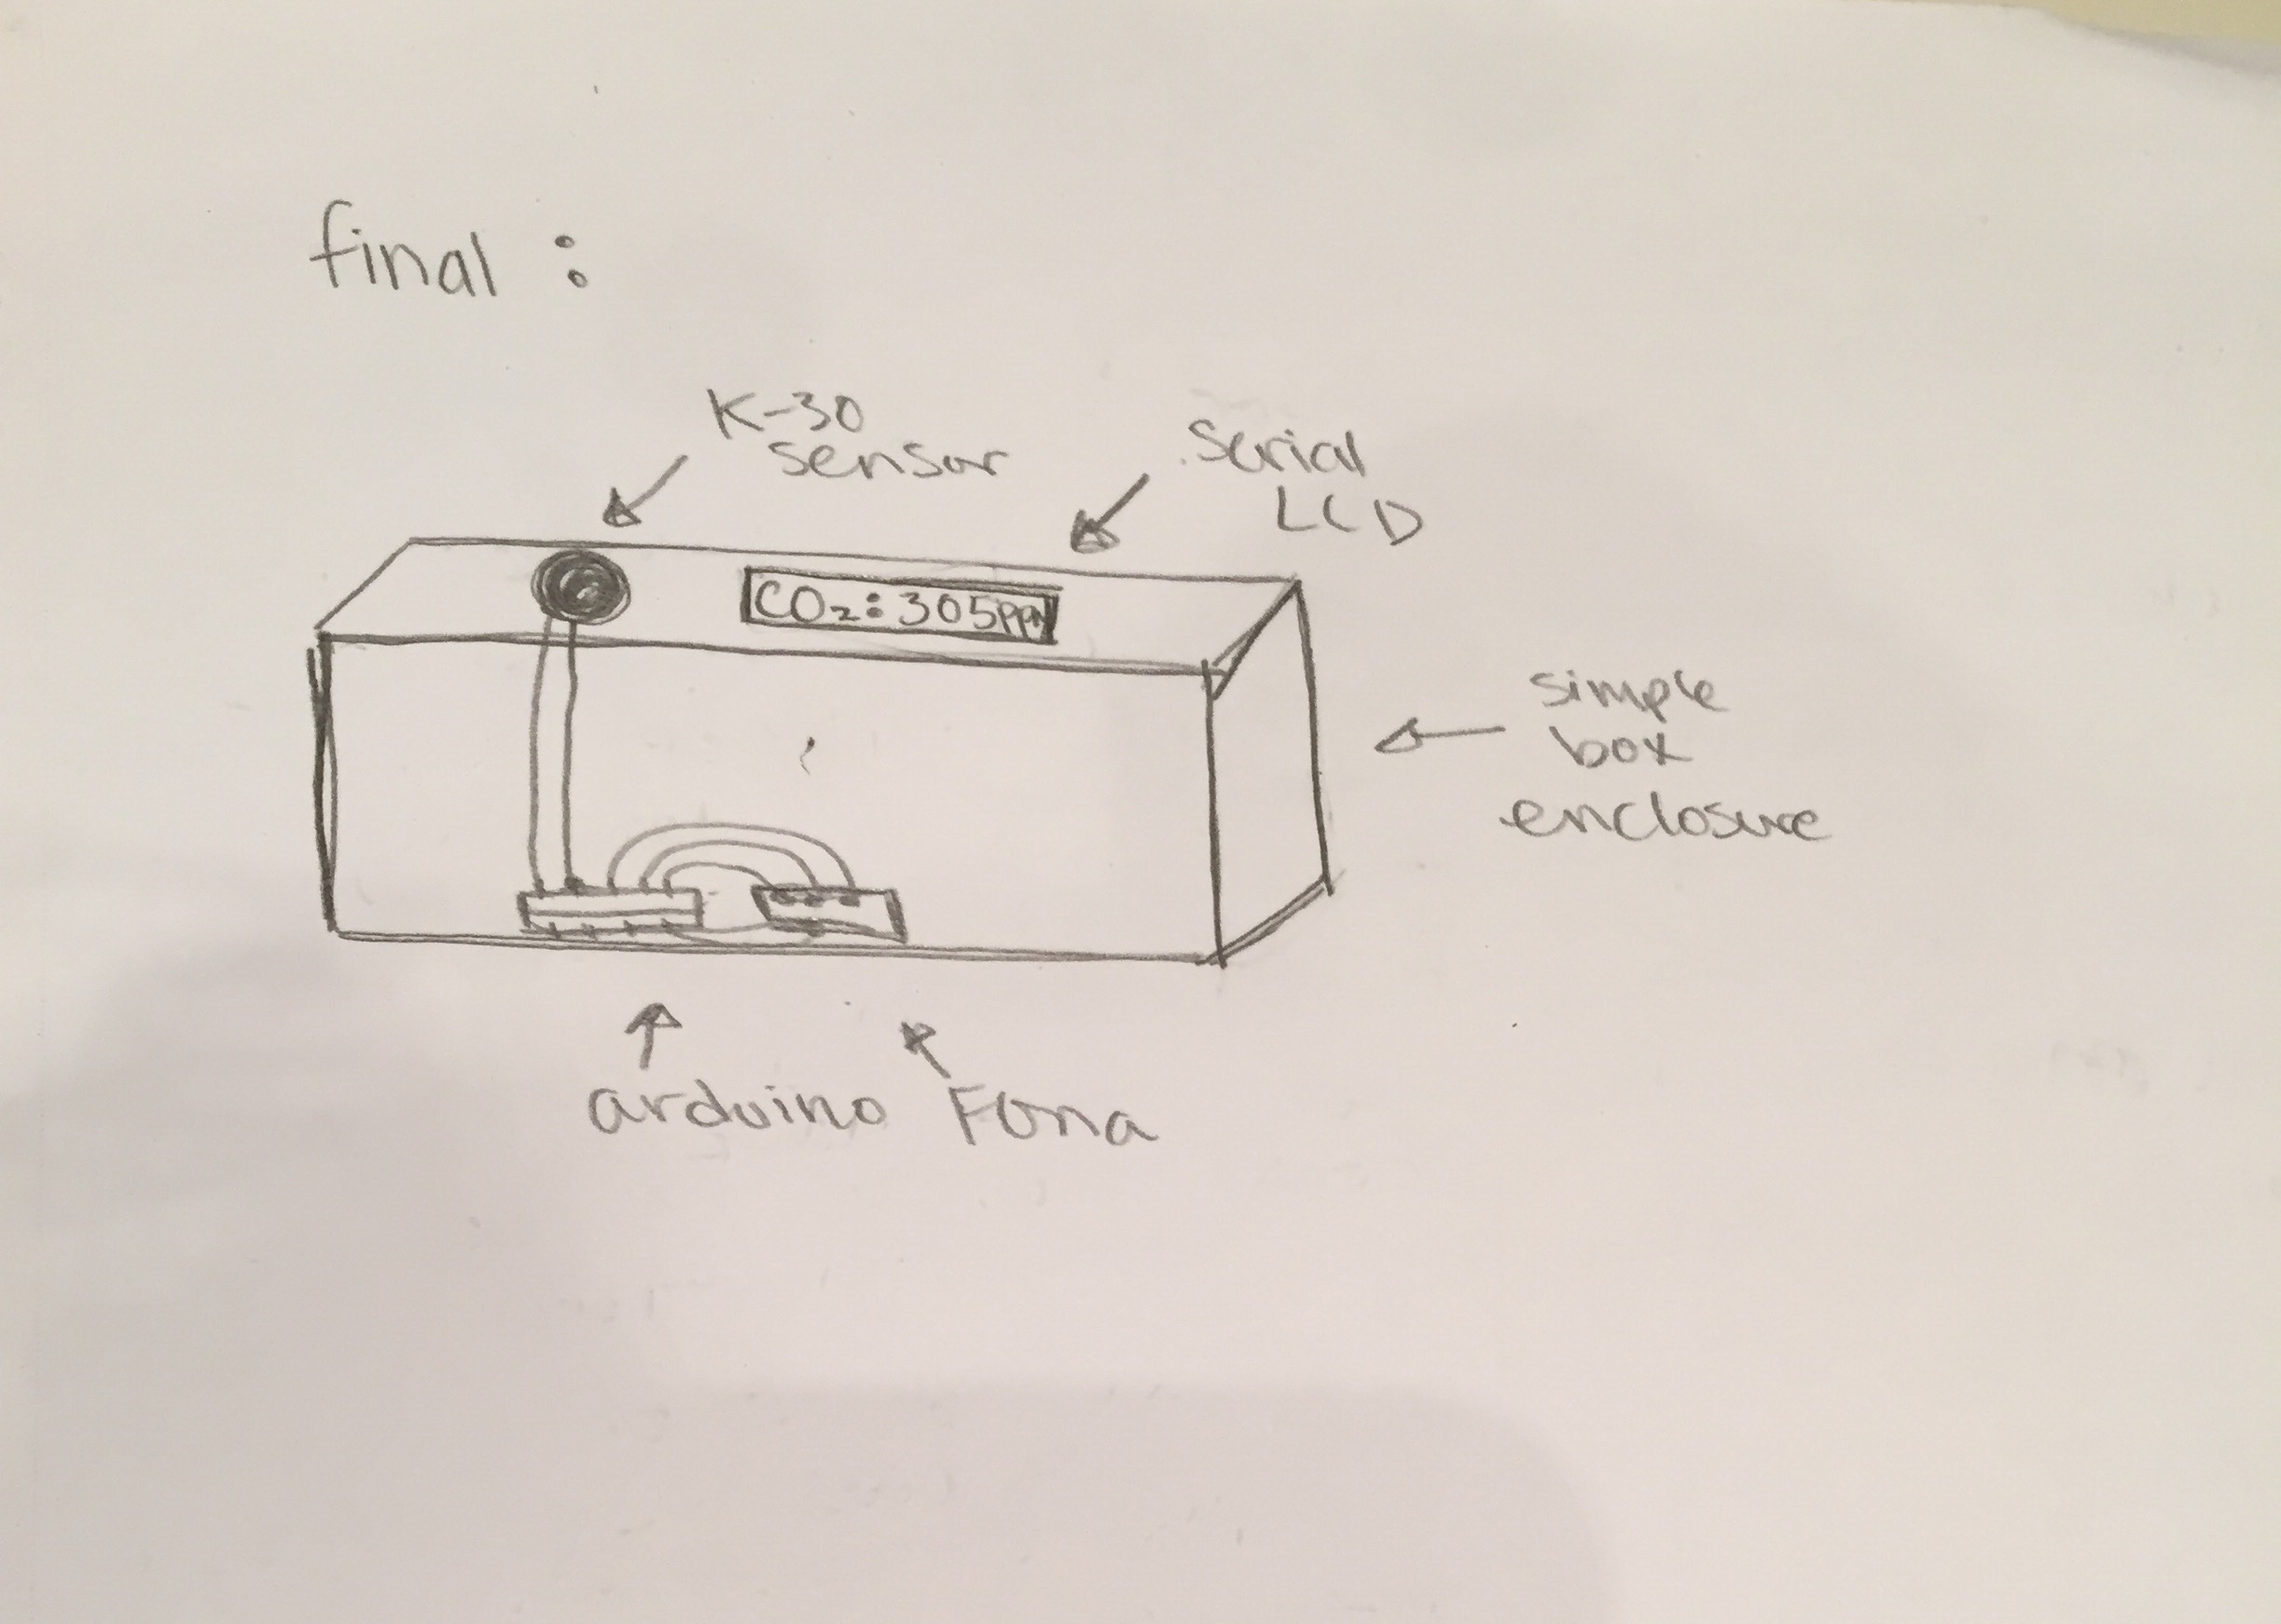 final :
K-30
sensor
Serial
LCD
CO₂: 305ppm
simple
box
enclosure
arduino
Fona